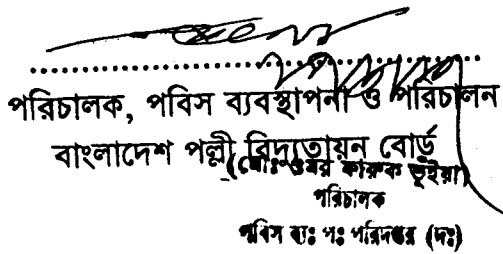 পরিচালক, পবিস ব্যবস্থাপনা ও পরিচালন
বাংলাদেশ পল্লী বিদ্যুতায়ন বোর্ড
(মোঃ ওমর ফারুক ভূইয়া)
পরিচালক
পবিস ব্যঃ পঃ পরিদপ্তর (দঃ)